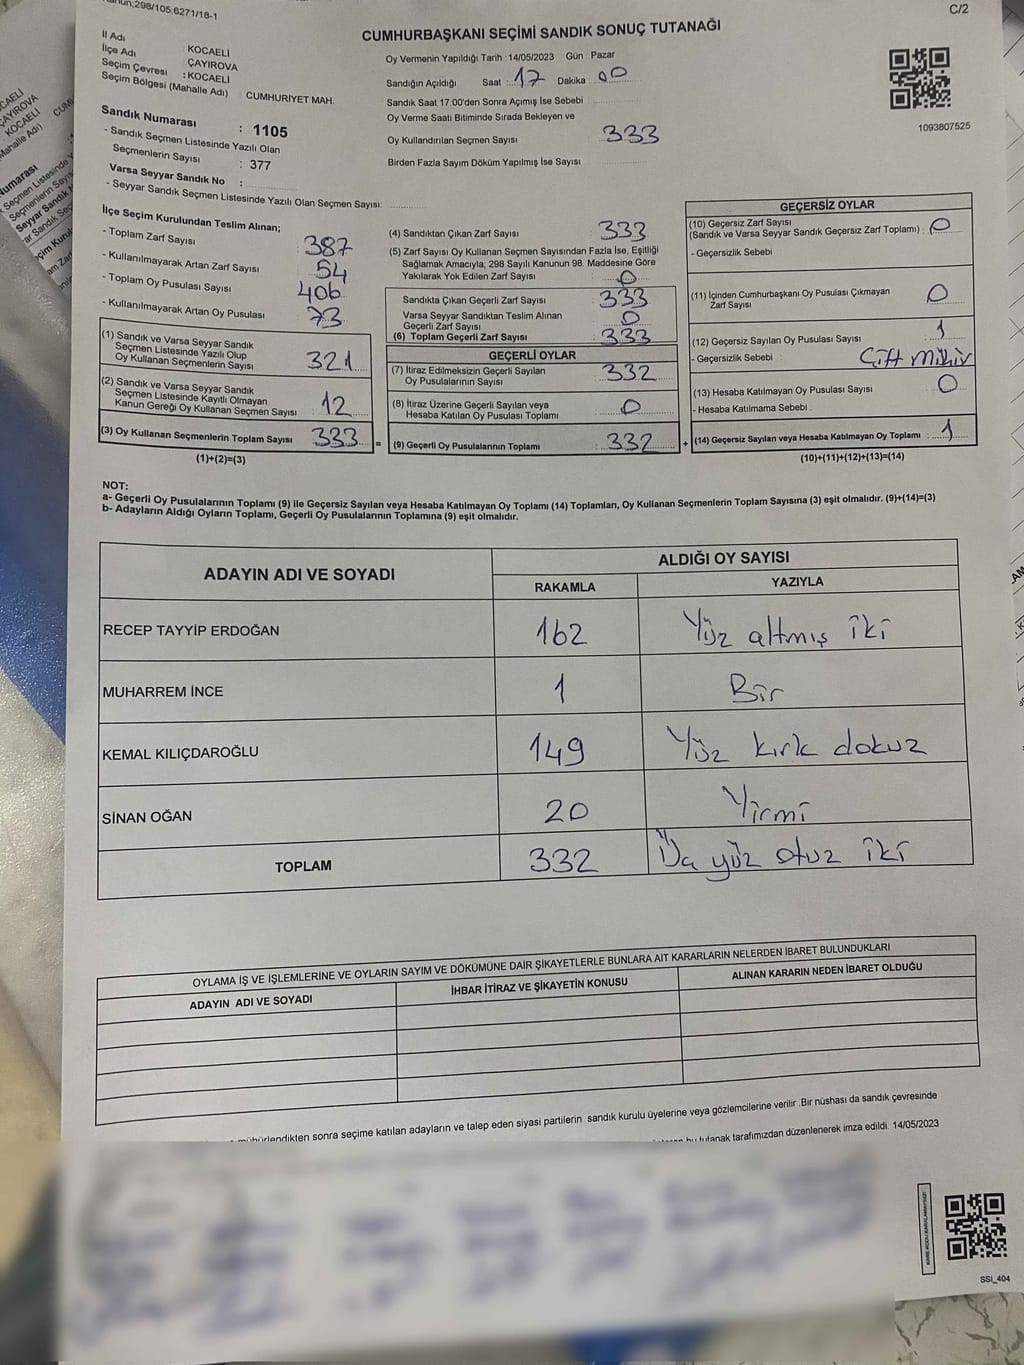 298/105;6271/18-1
C/2
CUMHURBAŞKANI SEÇİMİ SANDIK SONUÇ TUTANAĞI
İl Adı KOCAELİ
İlçe Adı ÇAYIROVA
Seçim Çevresi : KOCAELİ
Seçim Bölgesi (Mahalle Adı) : CUMHURİYET MAH.
Oy Vermenin Yapıldığı Tarih : 14/05/2023 Gün : Pazar
Sandığın Açıldığı Saat : 17 Dakika : 00
Sandık Saat 17.00'den Sonra Açımış İse Sebebi
Oy Verme Saati Bitiminde Sırada Bekleyen ve
Oy Kullandırılan Seçmen Sayısı 333
Birden Fazla Sayım Döküm Yapılmış İse Sayısı
1093807525
Sandık Numarası : 1105
- Sandık Seçmen Listesinde Yazılı Olan
Seçmenlerin Sayısı : 377
Varsa Seyyar Sandık No :
- Seyyar Sandık Seçmen Listesinde Yazılı Olan Seçmen Sayısı:
İlçe Seçim Kurulundan Teslim Alınan;
- Toplam Zarf Sayısı 387
- Kullanılmayarak Artan Zarf Sayısı 54
- Toplam Oy Pusulası Sayısı 406
- Kullanılmayarak Artan Oy Pusulası 73
(1) Sandık ve Varsa Seyyar Sandık
Seçmen Listesinde Yazılı Olup
Oy Kullanan Seçmenlerin Sayısı 321
(2) Sandık ve Varsa Seyyar Sandık
Seçmen Listesinde Kayıtlı Olmayan
Kanun Gereği Oy Kullanan Seçmen Sayısı 12
(3) Oy Kullanan Seçmenlerin Toplam Sayısı 333 =
(1)+(2)=(3)
(4) Sandıktan Çıkan Zarf Sayısı 333
(5) Zarf Sayısı Oy Kullanan Seçmen Sayısından Fazla İse, Eşitliği
Sağlamak Amacıyla; 298 Sayılı Kanunun 98. Maddesine Göre
Yakılarak Yok Edilen Zarf Sayısı : 0
Sandıkta Çıkan Geçerli Zarf Sayısı : 333
Varsa Seyyar Sandıktan Teslim Alınan
Geçerli Zarf Sayısı : 0
(6) Toplam Geçerli Zarf Sayısı : 333
GEÇERLİ OYLAR
(7) İtiraz Edilmeksizin Geçerli Sayılan
Oy Pusulalarının Sayısı : 332
(8) İtiraz Üzerine Geçerli Sayılan veya
Hesaba Katılan Oy Pusulası Toplamı : 0
(9) Geçerli Oy Pusulalarının Toplamı : 332 +
GEÇERSİZ OYLAR
(10) Geçersiz Zarf Sayısı
(Sandık ve Varsa Seyyar Sandık Geçersiz Zarf Toplamı) : 0
- Geçersizlik Sebebi
(11) İçinden Cumhurbaşkanı Oy Pusulası Çıkmayan
Zarf Sayısı 0
(12) Geçersiz Sayılan Oy Pusulası Sayısı 1
- Geçersizlik Sebebi : Çift mühür
(13) Hesaba Katılmayan Oy Pusulası Sayısı 0
- Hesaba Katılmama Sebebi
(14) Geçersiz Sayılan veya Hesaba Katılmayan Oy Toplamı : 1
(10)+(11)+(12)+(13)=(14)
NOT:
a- Geçerli Oy Pusulalarının Toplamı (9) ile Geçersiz Sayılan veya Hesaba Katılmayan Oy Toplamı (14) Toplamları, Oy Kullanan Seçmenlerin Toplam Sayısına (3) eşit olmalıdır. (9)+(14)=(3)
b- Adayların Aldığı Oyların Toplamı, Geçerli Oy Pusulalarının Toplamına (9) eşit olmalıdır.
ADAYIN ADI VE SOYADI
ALDIĞI OY SAYISI
RAKAMLA YAZIYLA
RECEP TAYYİP ERDOĞAN 162 Yüz altmış iki
MUHARREM İNCE 1 Bir
KEMAL KILIÇDAROĞLU 149 Yüz kırk dokuz
SİNAN OĞAN 20 Yirmi
TOPLAM 332 Üç yüz otuz iki
OYLAMA İŞ VE İŞLEMLERİNE VE OYLARIN SAYIM VE DÖKÜMÜNE DAİR ŞİKAYETLERLE BUNLARA AİT KARARLARIN NELERDEN İBARET BULUNDUKLARI
ADAYIN ADI VE SOYADI İHBAR İTİRAZ VE ŞİKAYETİN KONUSU ALINAN KARARIN NEDEN İBARET OLDUĞU
mühürlendikten sonra seçime katılan adayların ve talep eden siyasi partilerin sandık kurulu üyelerine veya gözlemcilerine verilir .Bir nüshası da sandık çevresinde
bu tutanak tarafımızdan düzenlenerek imza edildi. 14/05/2023
SSI_404